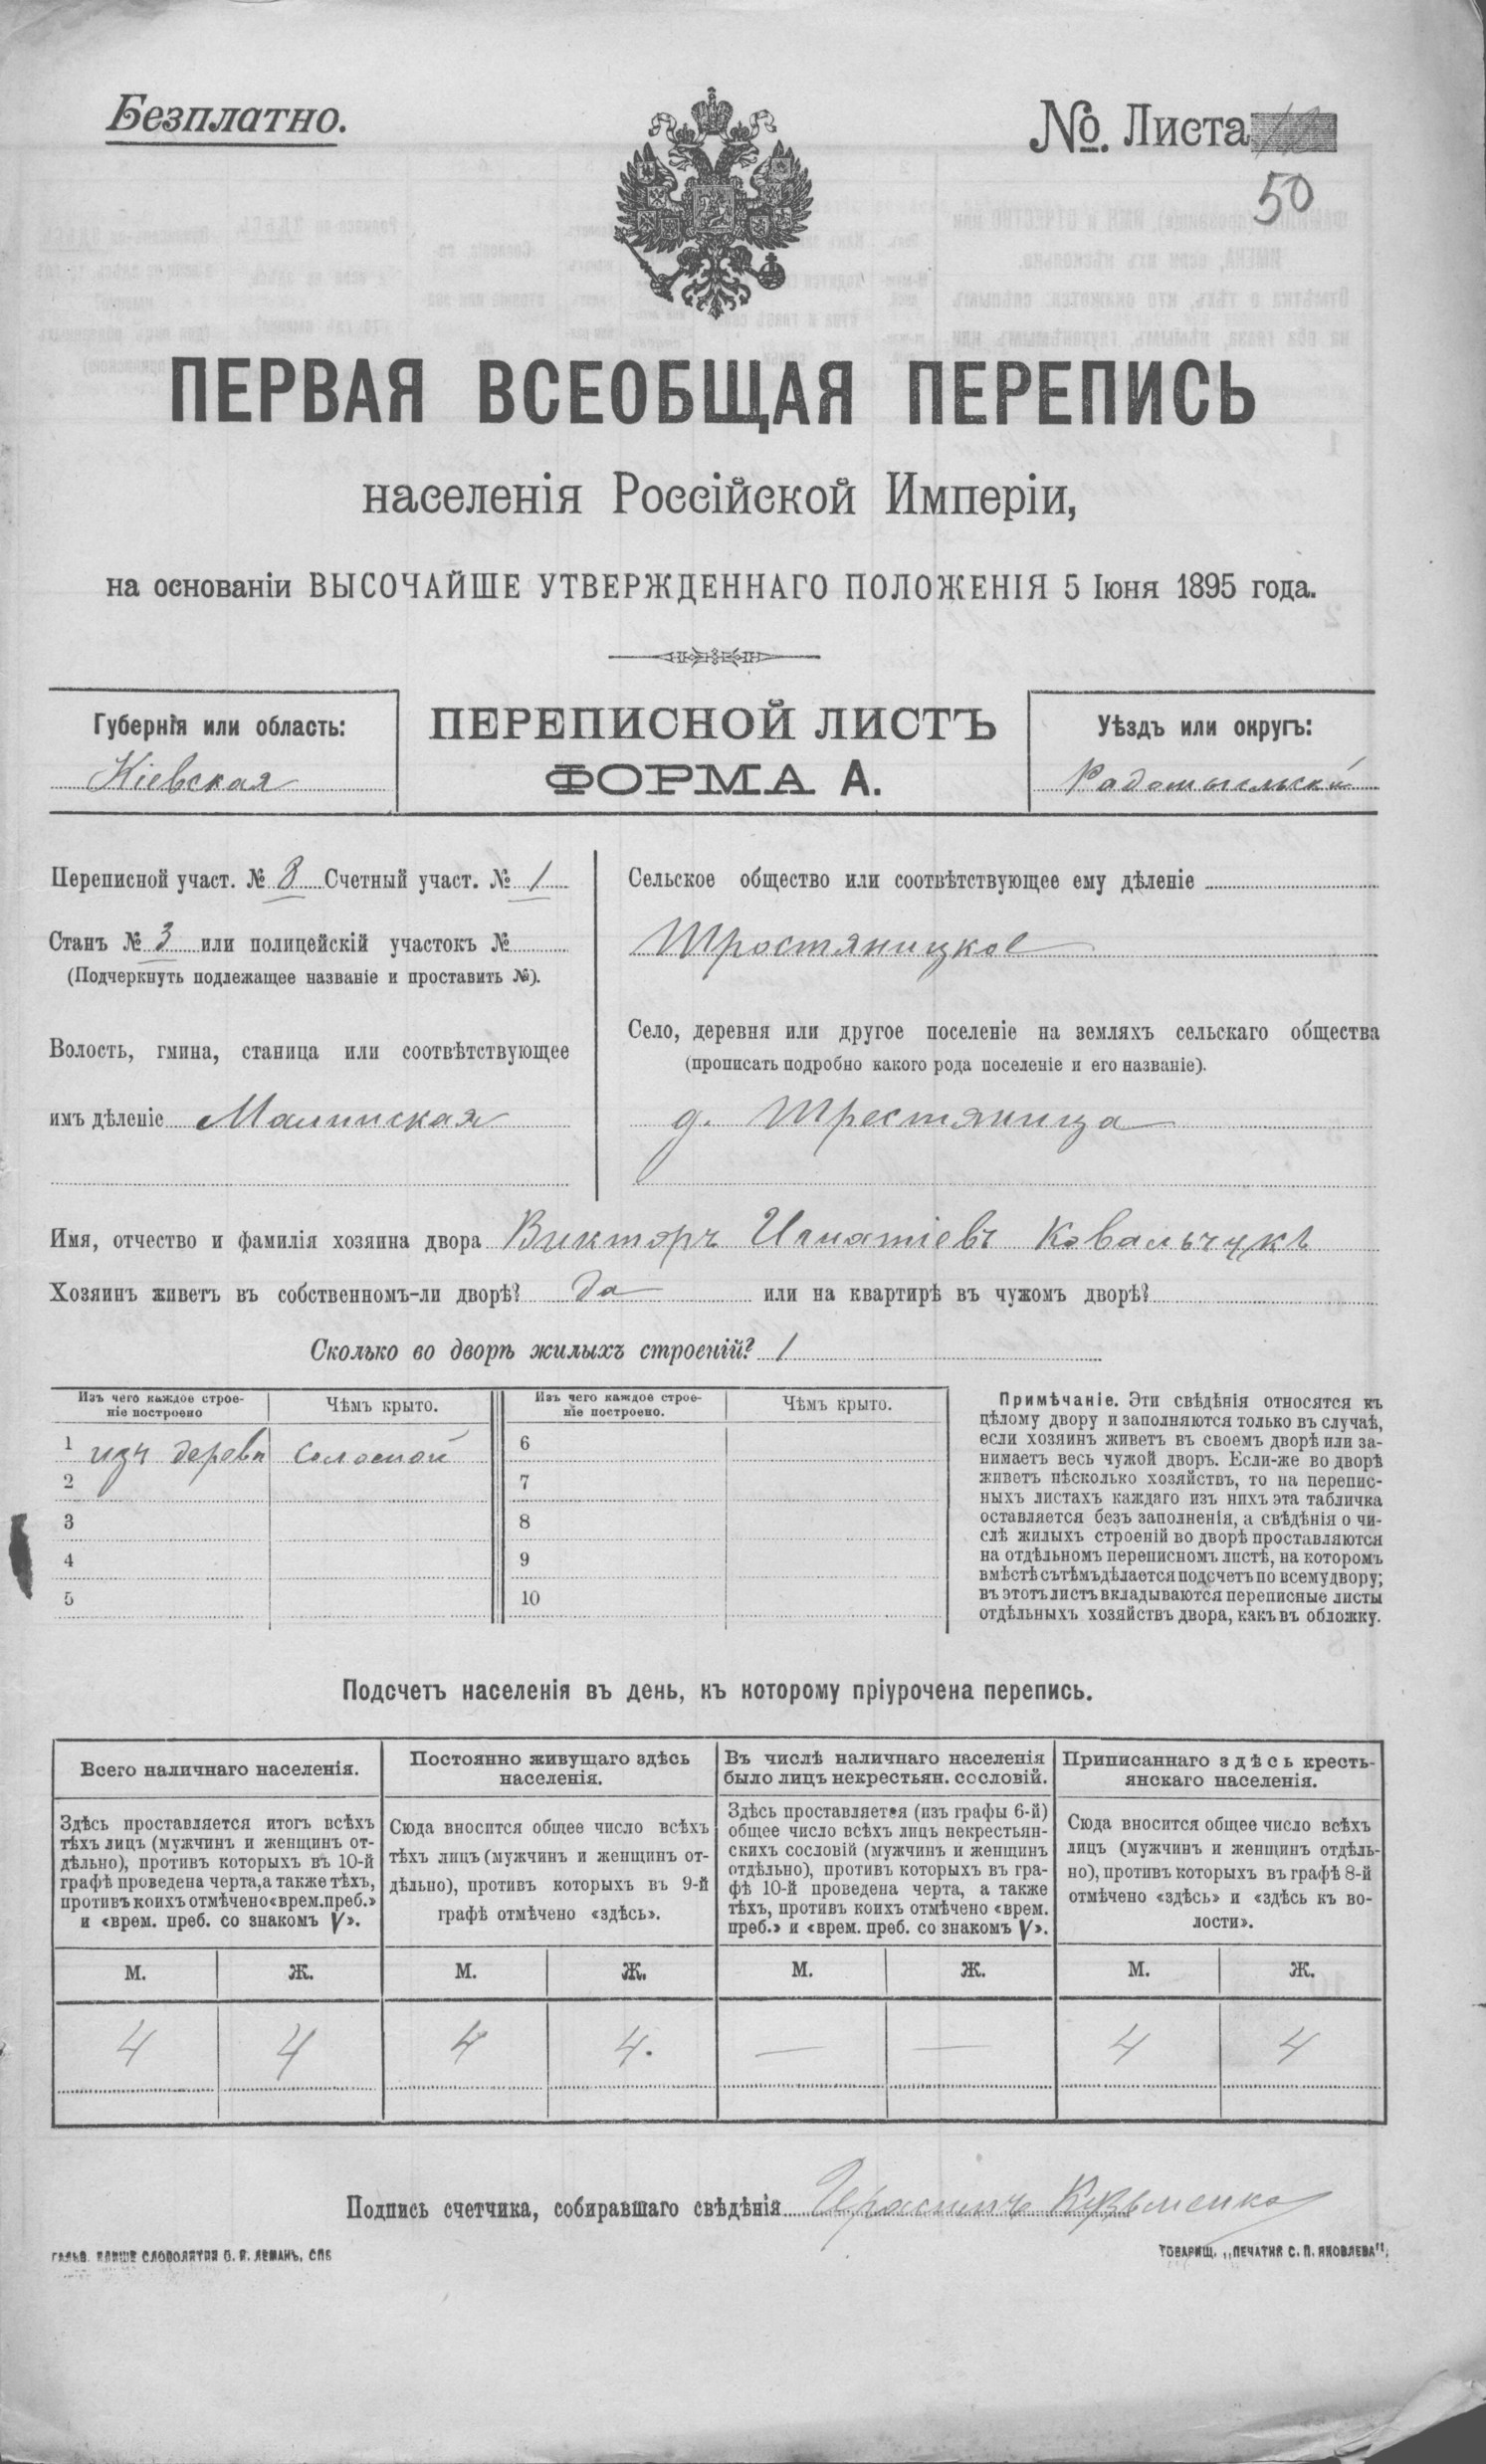 Безплатно.
№. Листа
50
ПЕРВАЯ ВСЕОБЩАЯ ПЕРЕПИСЬ
населенія Россійской Имперіи,
на основаніи ВЫСОЧАЙШЕ УТВЕРЖДЕННАГО ПОЛОЖЕНІЯ 5 Іюня 1895 года.
Губернія или область:
Кіевская
ПЕРЕПИСНОЙ ЛИСТЪ
ФОРМА А.
Уѣздъ или округъ:
Радомысльскій
Переписной участ. № 8 Счетный участ. № 1
Станъ № 3 или полицейскій участокъ №
(Подчеркнуть подлежащее названіе и проставить №).
Волость, гмина, станица или соотвѣтствующее
имъ дѣленіе Малинская
Сельское общество или соотвѣтствующее ему дѣленіе
Тростяницкое
Село, деревня или другое поселеніе на земляхъ сельскаго общества
(прописать подробно какого рода поселеніе и его названіе).
д. Трестяница
Имя, отчество и фамилія хозяина двора Викторъ Игнатіевъ Ковальчукъ
Хозяинъ живетъ въ собственномъ-ли дворѣ? да или на квартирѣ въ чужомъ дворѣ?
Сколько во дворѣ жилыхъ строеній? 1
Изъ чего каждое строе-
ніе построено
Чѣмъ крыто.
1 изъ дерева Соломой
2
3
4
5
Изъ чего каждое строе-
ніе построено.
Чѣмъ крыто.
6
7
8
9
10
Примѣчаніе. Эти свѣдѣнія относятся къ
цѣлому двору и заполняются только въ случаѣ,
если хозяинъ живетъ въ своемъ дворѣ или за-
нимаетъ весь чужой дворъ. Если-же во дворѣ
живетъ нѣсколько хозяйствъ, то на перепис-
ныхъ листахъ каждаго изъ нихъ эта табличка
оставляется безъ заполненія, а свѣдѣнія о чи-
слѣ жилыхъ строеній во дворѣ проставляются
на отдѣльномъ переписномъ листѣ, на которомъ
вмѣстѣ съ тѣмъ дѣлается подсчетъ по всему двору;
въ этотъ листъ вкладываются переписные листы
отдѣльныхъ хозяйствъ двора, какъ въ обложку.
Подсчетъ населенія въ день, къ которому пріурочена перепись.
Всего наличнаго населенія.
Здѣсь проставляется итогъ всѣхъ
тѣхъ лицъ (мужчинъ и женщинъ от-
дѣльно), противъ которыхъ въ 10-й
графѣ проведена черта, а также тѣхъ,
противъ коихъ отмѣчено «врем. преб.»
и «врем. преб. со знакомъ V».
М. Ж.
4 4
Постоянно живущаго здѣсь
населенія.
Сюда вносится общее число всѣхъ
тѣхъ лицъ (мужчинъ и женщинъ от-
дѣльно), противъ которыхъ въ 9-й
графѣ отмѣчено «здѣсь».
М. Ж.
4 4.
Въ числѣ наличнаго населенія
было лицъ некрестьян. сословій.
Здѣсь проставляется (изъ графы 6-й)
общее число всѣхъ лицъ некрестьян-
скихъ сословій (мужчинъ и женщинъ
отдѣльно), противъ которыхъ въ гра-
фѣ 10-й проведена черта, а также
тѣхъ, противъ коихъ отмѣчено «врем.
преб.» и «врем. преб. со знакомъ V».
М. Ж.
— —
Приписаннаго здѣсь кресть-
янскаго населенія.
Сюда вносится общее число всѣхъ
лицъ (мужчинъ и женщинъ отдѣль-
но), противъ которыхъ въ графѣ 8-й
отмѣчено «здѣсь» и «здѣсь къ во-
лости».
М. Ж.
4 4
Подпись счетчика, собиравшаго свѣдѣнія Герасимъ Кузьменко
ГАЛЬВ. КЛИШЕ СЛОВОЛИТНИ О. И. ЛЕМАНЪ, СПБ
ТОВАРИЩ. „ПЕЧАТНЯ С. П. ЯКОВЛЕВА“.